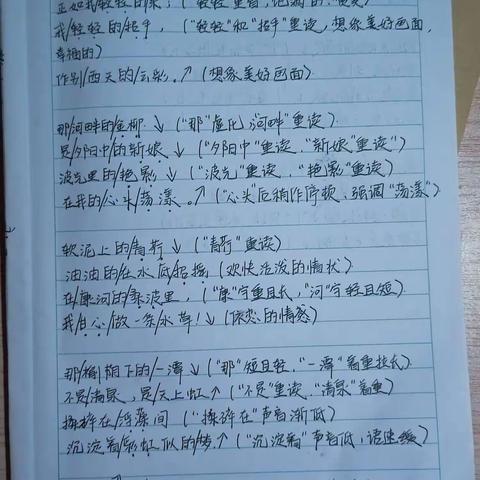 正如我/轻轻的来，（"轻轻"重音，
我/轻轻的/招手，（"轻轻"和"招手"重读，想象美好画面，
幸福的）
作别/西天的/云彩。↗（想象美好画面）
那/河畔的/金柳 ↘（"那"虚化，"河畔"重读）
是/夕阳中/的新娘 ↘（"夕阳中"重读，"新娘"重读"）
波光里的/艳影 ↘（"波光"重读，"艳影"重读）
在我的/心头/荡漾。↗（"心头"后稍作停顿，强调"荡漾"）
软泥上的/青荇 ↘（"青荇"重读）
油油的/在水底/招摇；（欢快活泼的情状）
在/康河的/柔波里，（"康"字重且长，"河"字轻且短）
我/甘心/做一条/水草！↘（依恋的情感）
那/榆荫下的/一潭 ↘（"那"短且轻，"一潭"着重拉长）
不是/清泉，是/天上虹 ↗（"不是"重读，"清泉"着重）
揉碎在/浮藻间（"揉碎在"声音渐低）
沉淀着/彩虹似的/梦。↗（"沉淀着"声音低，语速缓）